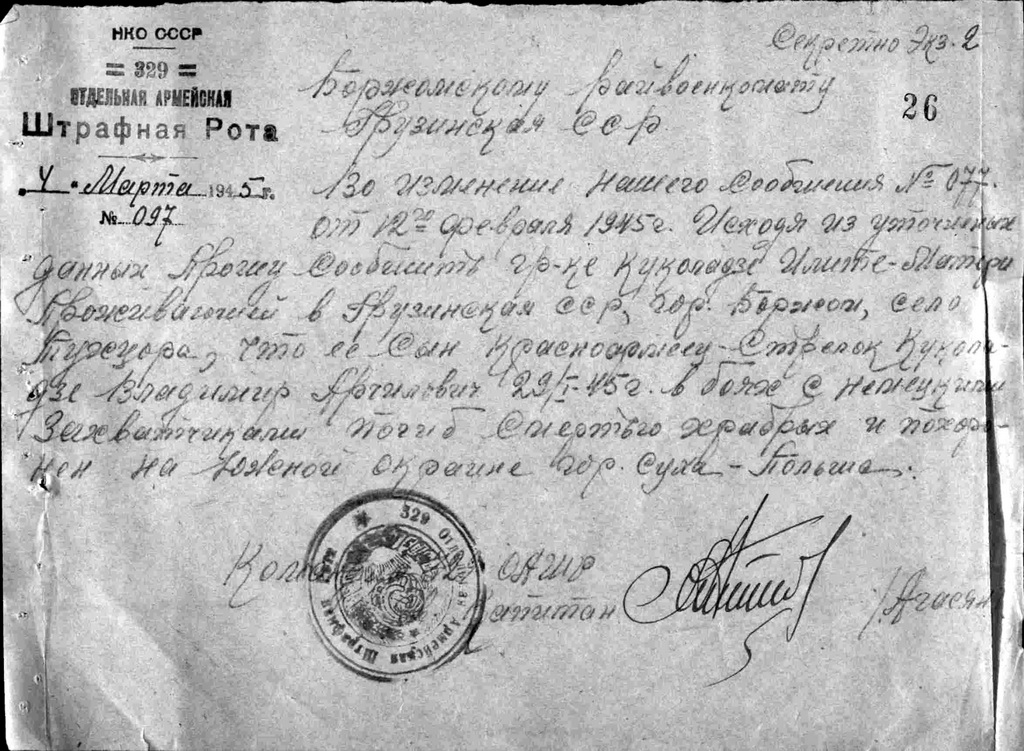 НКО СССР
= 329 =
ОТДЕЛЬНАЯ АРМЕЙСКАЯ
Штрафная Рота
"4" Марта 1945 г.
№ 097
Секретно Экз. 2
26
Боржомскому райвоенкомату
Грузинская ССР.
Во изменение нашего сообщения № 077.
от 12го февраля 1945 г. Исходя из уточненных
данных Прошу сообщить гр-ке Куколадзе - Матери
Проживающий в Грузинская ССР, гор. Боржом, село
что ее Сын Красноармеец-Стрелок Кукола-
дзе Владимир Арчилович 29/I-45 г. в боях с немецкими
Захватчиками погиб Смертью храбрых и похоро-
нен на Южной окраине гор. Суха - Польша.
329 Отдельная Армейская Штрафная
ОАШР
Капитан /Агасян